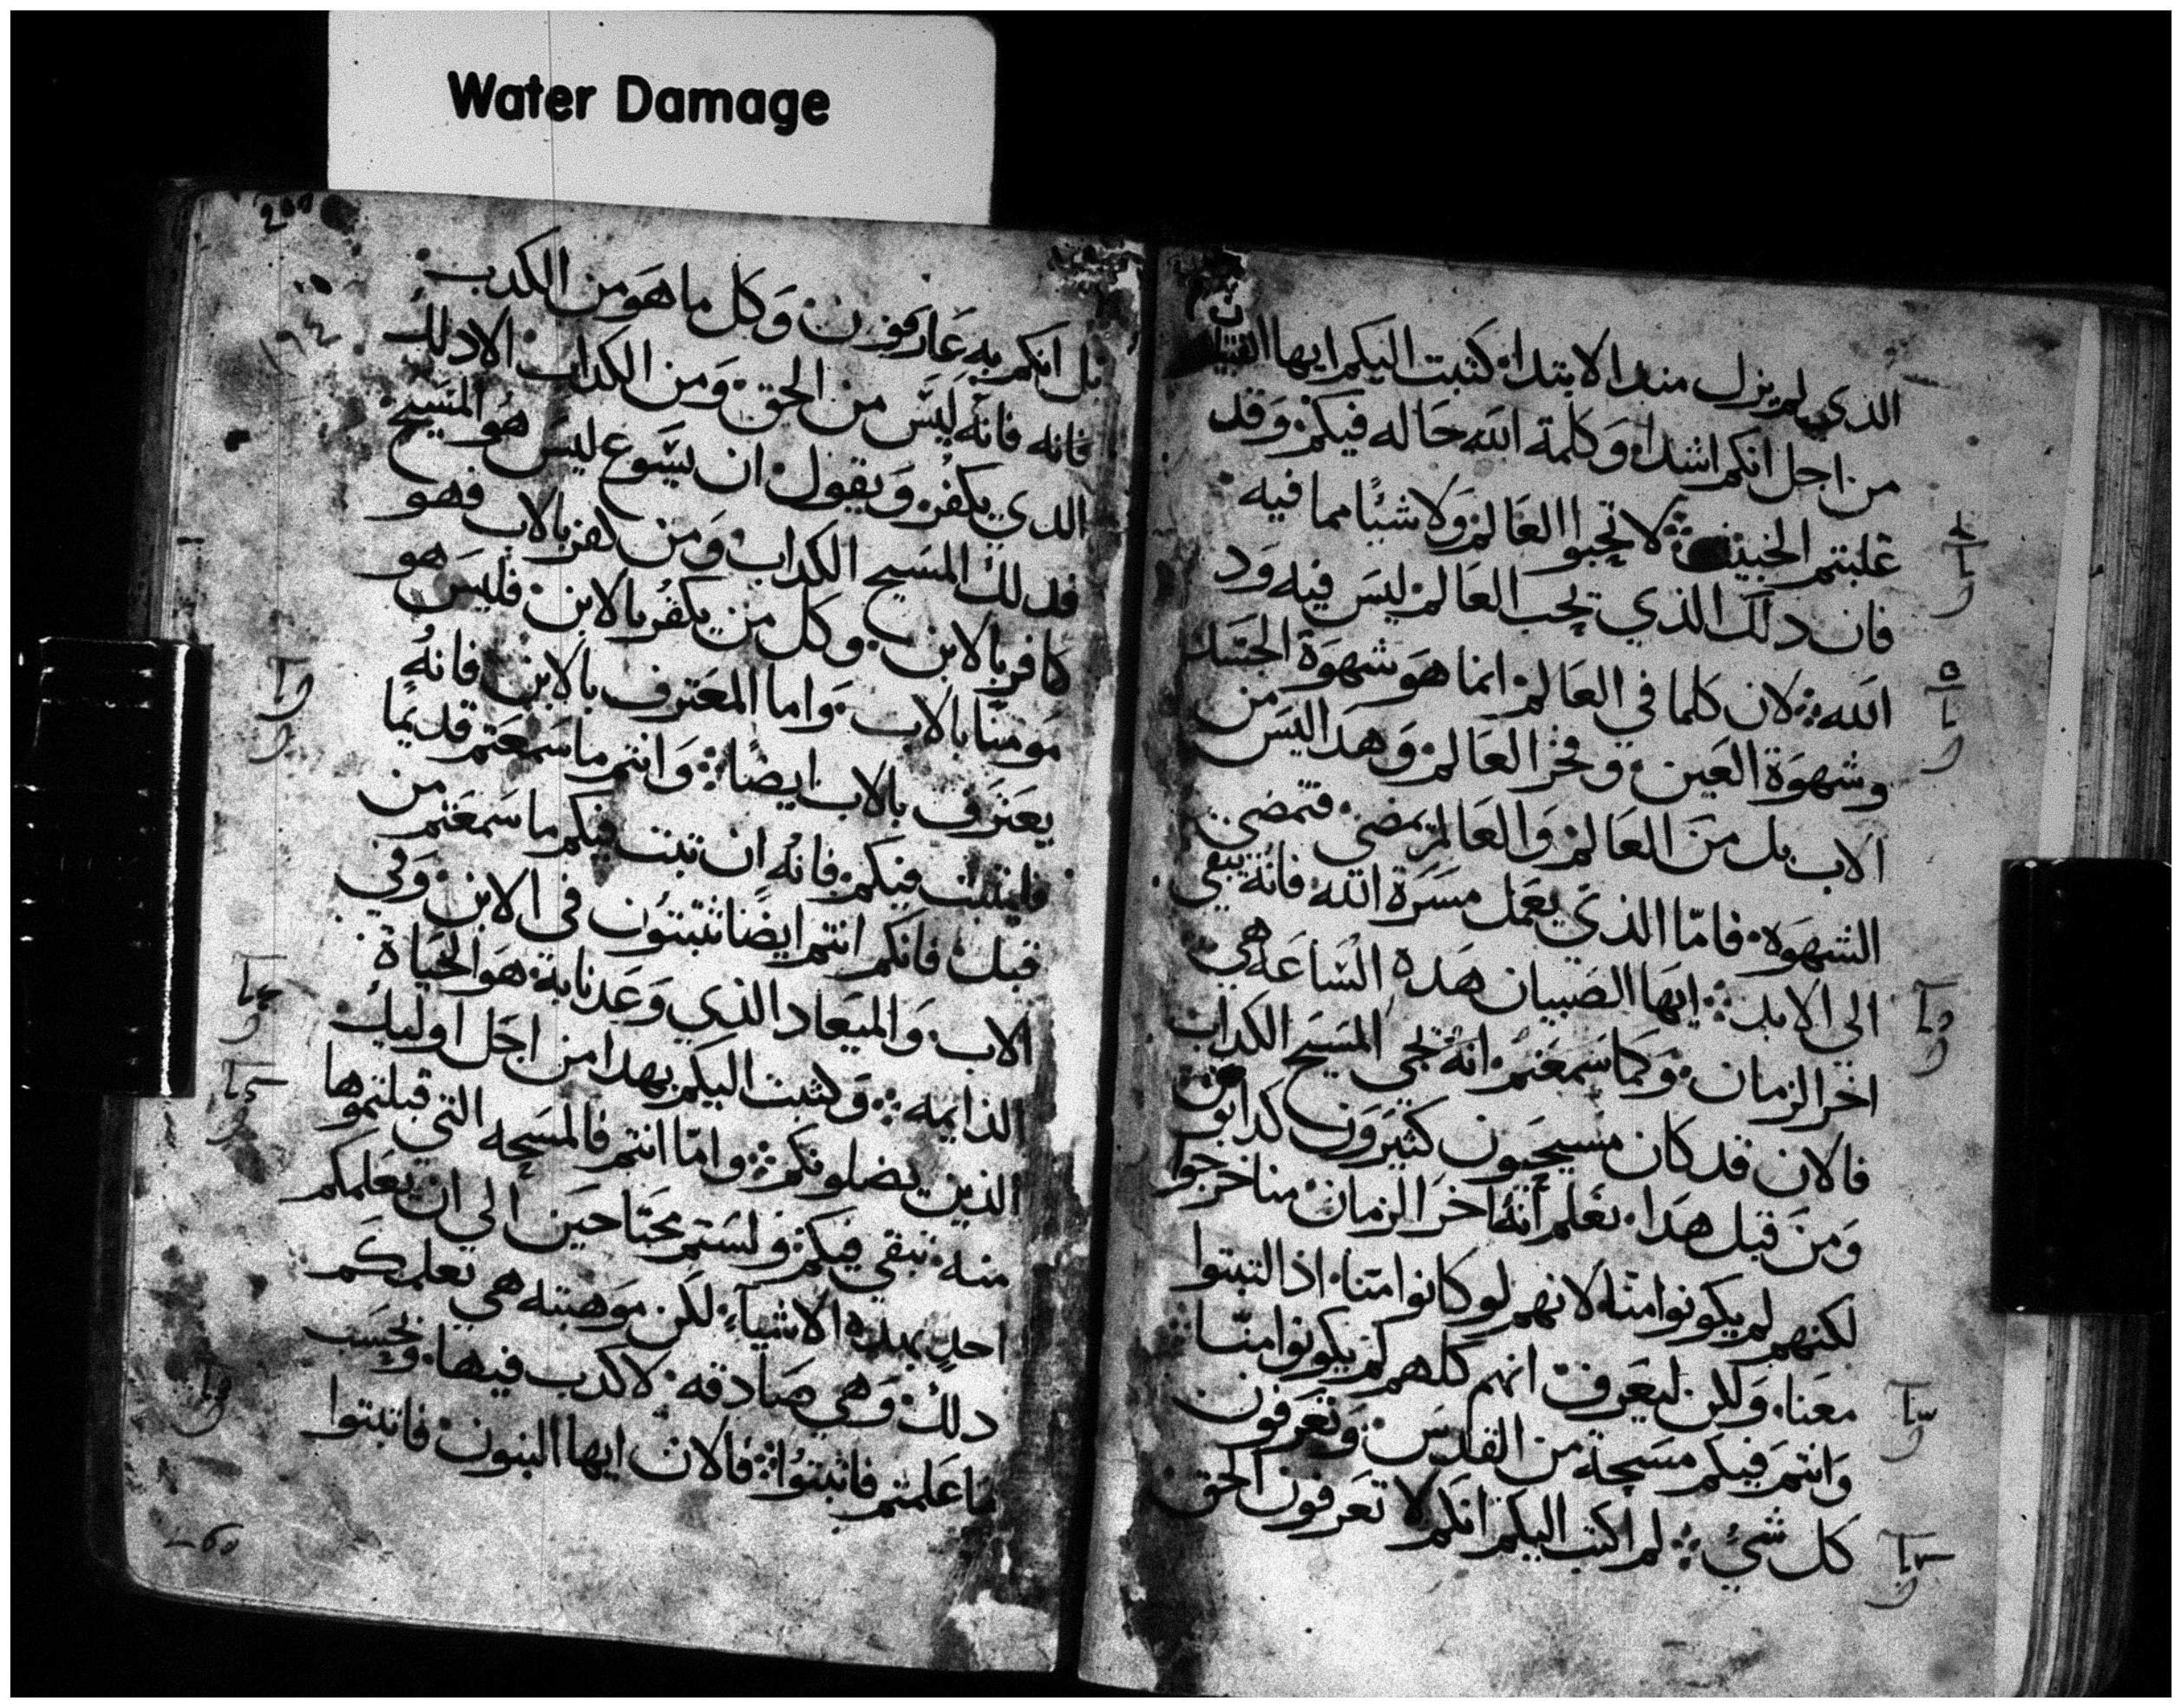 Water Damage
الذي لم يزل مند الابتدا، كتبت اليكم ايها الفتيا
ن
من اجل انكم اشدا، وكلمة الله حاله فيكم، وقد
غلبتم الخبيث ⁘ لا تحبوا العالم ولا شيًا مما فيه
فان دلك الذي يحب العالم ليس فيه ود
الله ⁘ لان كلما في العالم انما هو شهوة الجسد
وشهوة العين، وفخر العالم وهدا ليس من
الاب بل من العالم والعالم يمضي، فتمضي
الشهوة، فامّا الذي يعمل مسرة الله فانه يبقي
الي الابد ⁘ ايها الصبيان هده الساعه هي
اخر الزمان، وكما سمعتم، انه يجي المسيح الكداب
فالان قد كان مسيحيون كثيرون كدابون
ومن قبل هدا، نعلم انه اخر الزمان منا خرجوا
لكنهم لم يكونوا منا، لانهم لو كانوا منا، اذا لثبتوا
معنا، ولكن ليعرف انهم كلهم لم يكونوا منّا ⁘
وانتم فيكم مسحة من القدس، وتعرفون
كل شي ⁘ لم اكتب اليكم انكم لا تعرفون الحق
200
١٩٤
بل انكم به عارفون، وكل ما هو من الكدب
فانه فانه ليس من الحق، ومن الكداب الا دلك
الدي يكفر، ويقول ان يسوع ليس هو المسيح
فدلك المسيح الكداب، ومن كفر بالاب فهو
كافر بالابن، وكل من يكفر بالابن، فليس هو
مومنًا بالاب، واما المعترف بالابن فانه
يعترف بالاب ايضًا ⁘ وانتم ما سمعتم قديمًا
فليثبت فيكم، فانه ان تبت فيكم ما سمعتم من
قبل، فانكم انتم ايضًا تثبتون في الابن، وفي
الاب، والميعاد الذي وعدنا به، هو الحياة
الذايمه ⁘ وكتبت اليكم بهدا من اجل اوليك
الذين يضلونكم ⁘ وامّا انتم فالمسحه التي قبلتموها
منه، تبقي فيكم، ولستم محتاحين الي ان يعلمكم
احد بهذه الاشياء، لكن موهبته هي تعلمكم
دلك، وهي صادقه، لا كدب فيها، وبحسب
ما علمتم فاثبتوا ⁘ فالان ايها البنون، فاثبتوا